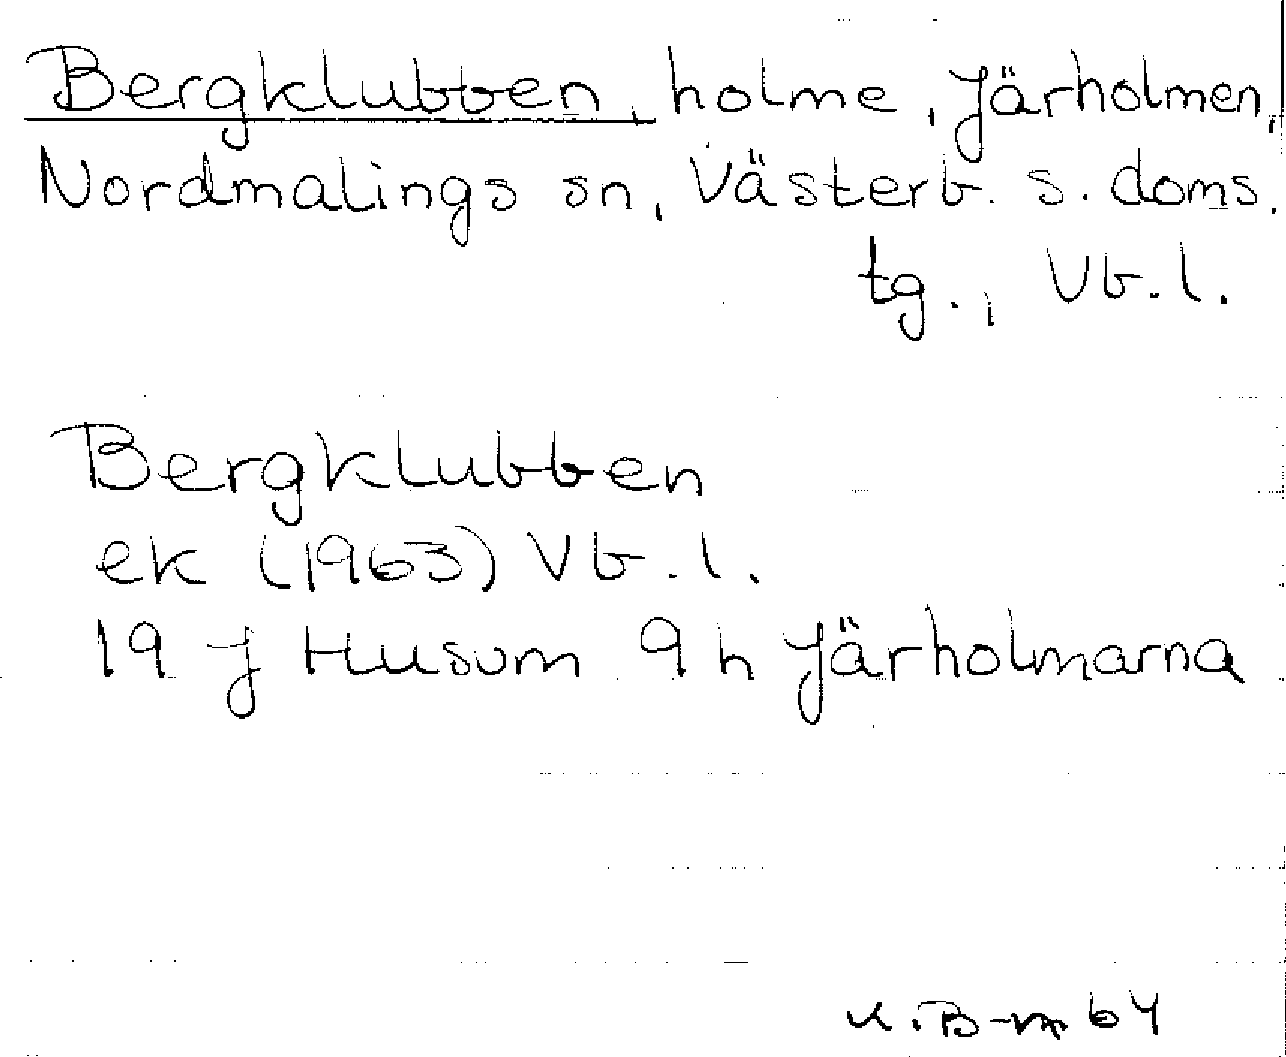 Bergklubben, holme, Järholmen,
Nordmalings sn, Västerb. s. doms.
tg., Vb.l.
Bergklubben
ek (1963) Vb.l.
19 J Husum 9 h Järholmarna
K.B-m 64